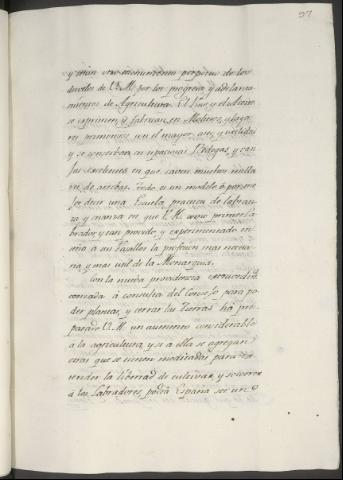 97
y serán otro monumento perpetuo de los
desvelos de V.M. por los progresos, y adelanta-
mientos de Agricultura. El Vino, y el Aceite
se exprimen y fabrican en Molinos, y laga-
res primorosos, con el mayor aseo, y utilidad
y se conserban en espaciosas Bodegas, y con
las excelentes en que caven muchos milla-
res de arrobas. Todo es un modelo ó por me-
jor decir una Escuela practica de labran-
za, y crianza en que V.M. como primer la-
brador, y tan provido y experimentado en-
seña á sus Vasallos la profesion mas necesa-
ria, y mas util de la Monarquia.
Con la nueva providencia
tomada á consulta del Consejo para po-
der plantar, y cerrar las tierras há pre-
parado V.M. un aumento considerable
á la agricultura, y si á ella se agregan
otras que se tienen meditadas para es-
tender la libertad de cultivar, y socorrer
á los Labradores, podrá España ser un